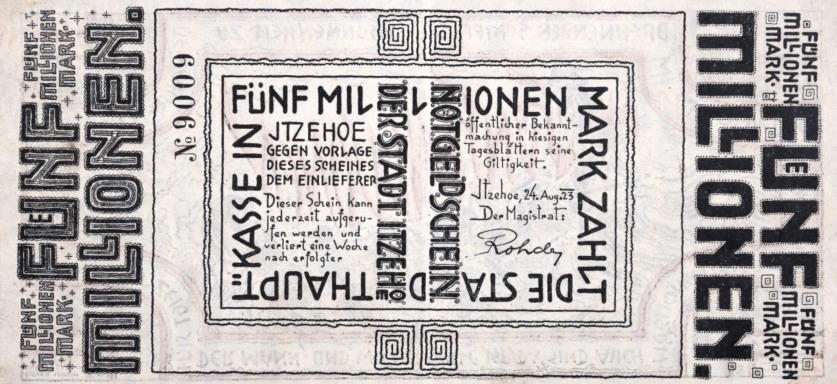 FÜNF MILLIONEN MARK.
FÜNF
FÜNF MILLIONEN MARK.
MILLIONEN.
№ 9009
FÜNF MILLIONEN
MARK ZAHLT
DIE STADTHAUPT=
KASSE IN
JTZEHOE
GEGEN VORLAGE
DIESES SCHEINES
DEM EINLIEFERER
Dieser Schein kann
jederzeit aufgeru-
fen werden und
verliert eine Woche
nach erfolgter
öffentlicher Bekannt-
machung in hiesigen
Tagesblättern seine
Giltigkeit.
Jtzehoe, 24. Aug. 23
Der Magistrat:
Rohde
NOTGELDSCHEIN
DER STADT ITZEHOE
MILLIONEN.
FÜNF MILLIONEN MARK.
FÜNF
FÜNF MILLIONEN MARK.